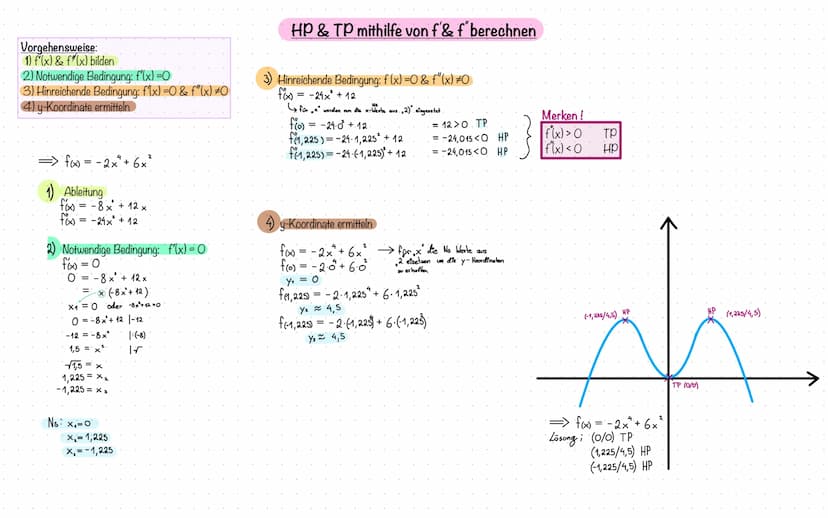 HP & TP mithilfe von f' & f" berechnen
Vorgehensweise:
1) f'(x) & f"(x) bilden
2) Notwendige Bedingung: f'(x)=0
3) Hinreichende Bedingung: f'(x)=0 & f"(x)≠0
4) y-Koordinate ermitteln
⟹ f(x) = -2x⁴ + 6x²
1) Ableitung
f'(x) = -8x³ + 12x
f"(x) = -24x² + 12
2) Notwendige Bedingung: f'(x) = 0
f'(x) = 0
0 = -8x³ + 12x
= x (-8x² + 12)
x₁ = 0 oder -8x²+12=0
0 = -8x² + 12 |-12
-12 = -8x² |:(-8)
1,5 = x² |√
√1,5 = x
1,225 = x₂
-1,225 = x₃
Ns: x₁=0
x₂=1,225
x₃=-1,225
3) Hinreichende Bedingung: f'(x)=0 & f"(x)≠0
f"(x) = -24x² + 12
↳ für "x" werden nun die x-Werte aus "2)" eingesetzt
f"(0) = -24·0² + 12 = 12>0 TP
f"(1,225) = -24·1,225² + 12 = -24,015<0 HP
f"(-1,225) = -24·(-1,225)² + 12 = -24,015<0 HP
Merken!
f"(x) > 0 TP
f"(x) < 0 HP
4) y-Koordinate ermitteln
f(x) = -2x⁴ + 6x² → für "x" die Ns Werte aus
2 einsetzen um die y-Koordinaten
zu erhalten
f(0) = -2·0⁴ + 6·0²
y₁ = 0
f(1,225) = -2·1,225⁴ + 6·1,225²
y₂ ≈ 4,5
f(-1,225) = -2·(-1,225)⁴ + 6·(-1,225)²
y₃ ≈ 4,5
(-1,225/4,5) HP
HP (1,225/4,5)
TP (0/0)
⟹ f(x) = -2x⁴ + 6x²
Lösung: (0/0) TP
(1,225/4,5) HP
(-1,225/4,5) HP